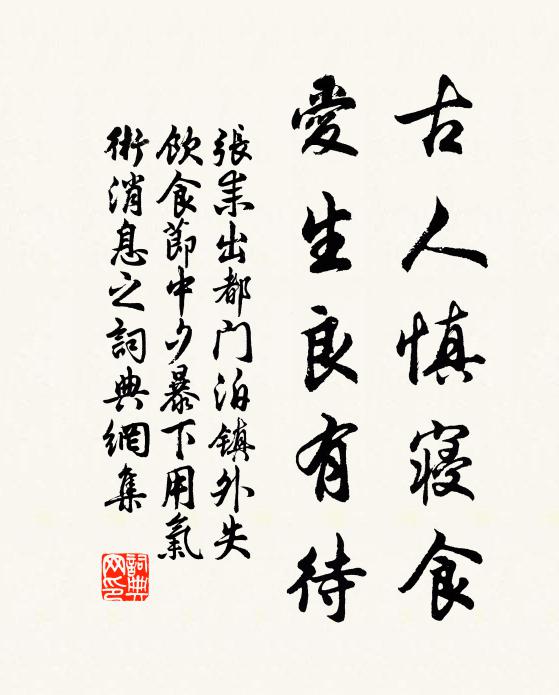 古人慎寝食
愛生良有待
張耒出都門泊鎮外失
飲食節中夕暴下用氣
術消息之詞典網集
詞典網印